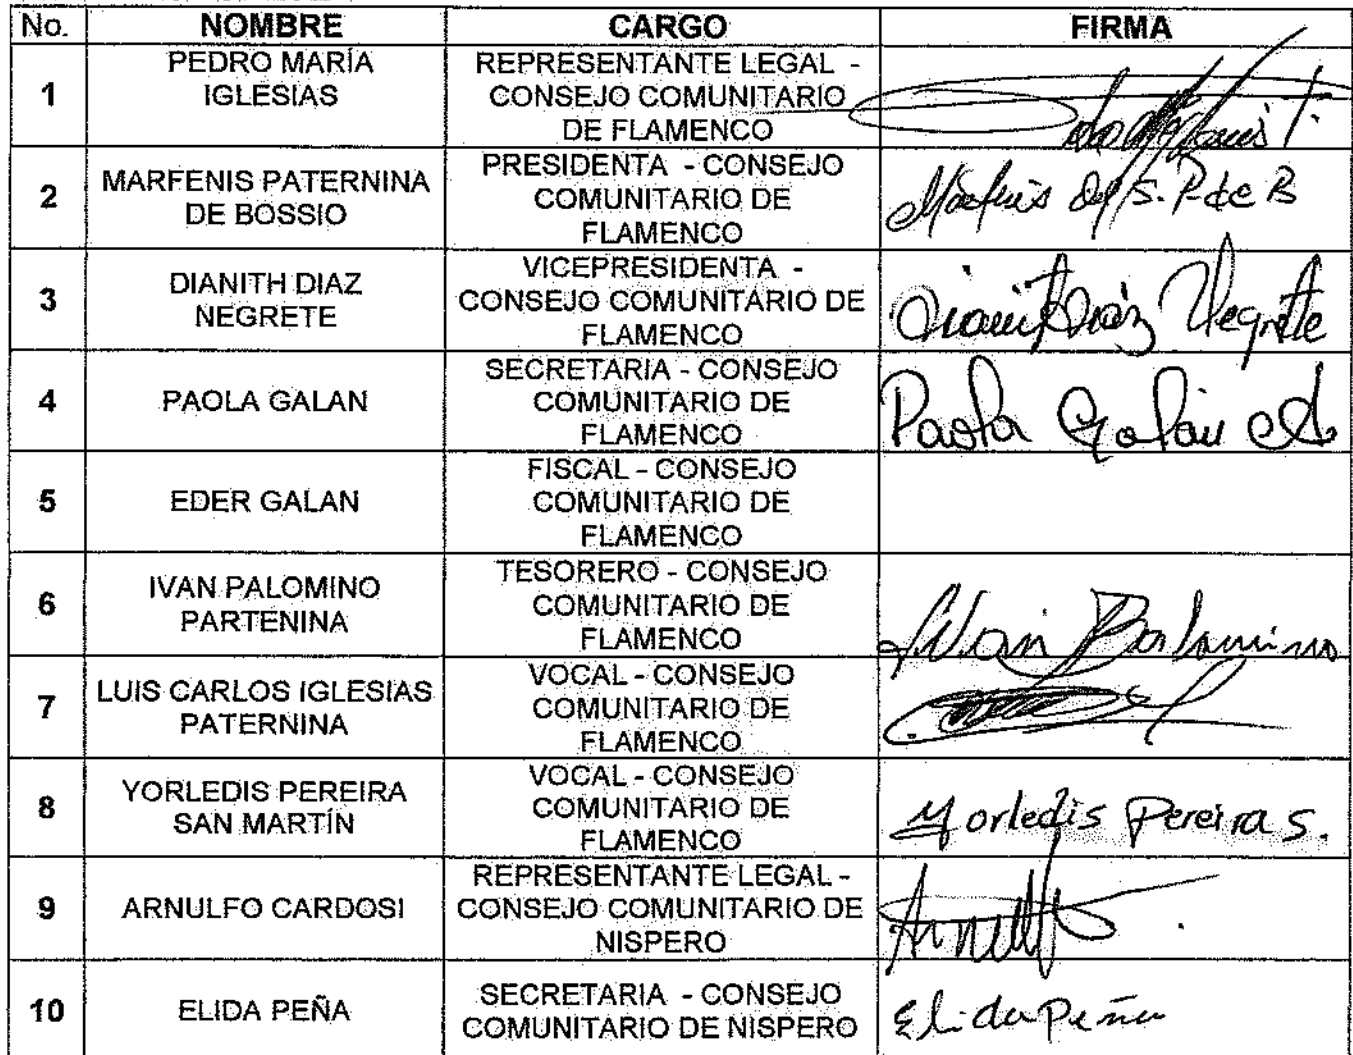 No. NOMBRE CARGO FIRMA
1 PEDRO MARÍA IGLESIAS REPRESENTANTE LEGAL - CONSEJO COMUNITARIO DE FLAMENCO
2 MARFENIS PATERNINA DE BOSSIO PRESIDENTA - CONSEJO COMUNITARIO DE FLAMENCO Marfenis del S. P de B
3 DIANITH DIAZ NEGRETE VICEPRESIDENTA - CONSEJO COMUNITARIO DE FLAMENCO Dianith Diaz Negrete
4 PAOLA GALAN SECRETARIA - CONSEJO COMUNITARIO DE FLAMENCO Paola Galan
5 EDER GALAN FISCAL - CONSEJO COMUNITARIO DE FLAMENCO
6 IVAN PALOMINO PARTENINA TESORERO - CONSEJO COMUNITARIO DE FLAMENCO Ivan Palomino
7 LUIS CARLOS IGLESIAS PATERNINA VOCAL - CONSEJO COMUNITARIO DE FLAMENCO
8 YORLEDIS PEREIRA SAN MARTÍN VOCAL - CONSEJO COMUNITARIO DE FLAMENCO Yorledis Pereira S.
9 ARNULFO CARDOSI REPRESENTANTE LEGAL - CONSEJO COMUNITARIO DE NISPERO
10 ELIDA PEÑA SECRETARIA - CONSEJO COMUNITARIO DE NISPERO Elida Peña